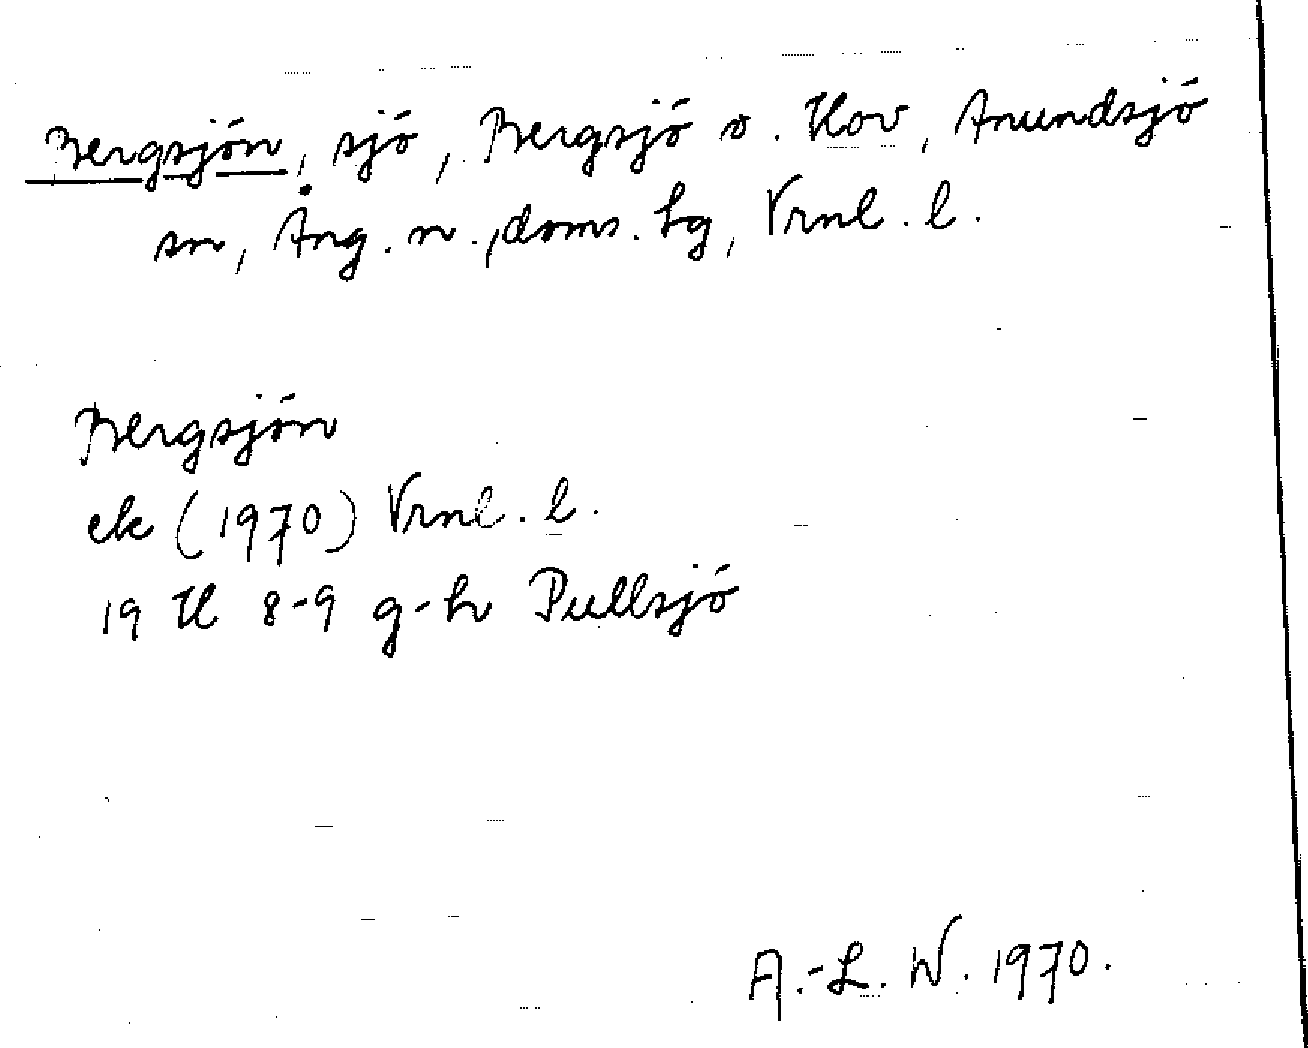 Bergsjön, sjö, Bergsjö o. Kov, Anundsjö
sn, Ång. n., doms. hg, Vrnl. l.
Bergsjön
ek (1970) Vrnl. l.
19 H 8-9 g-h Pullsjö
A.-L. W. 1970.